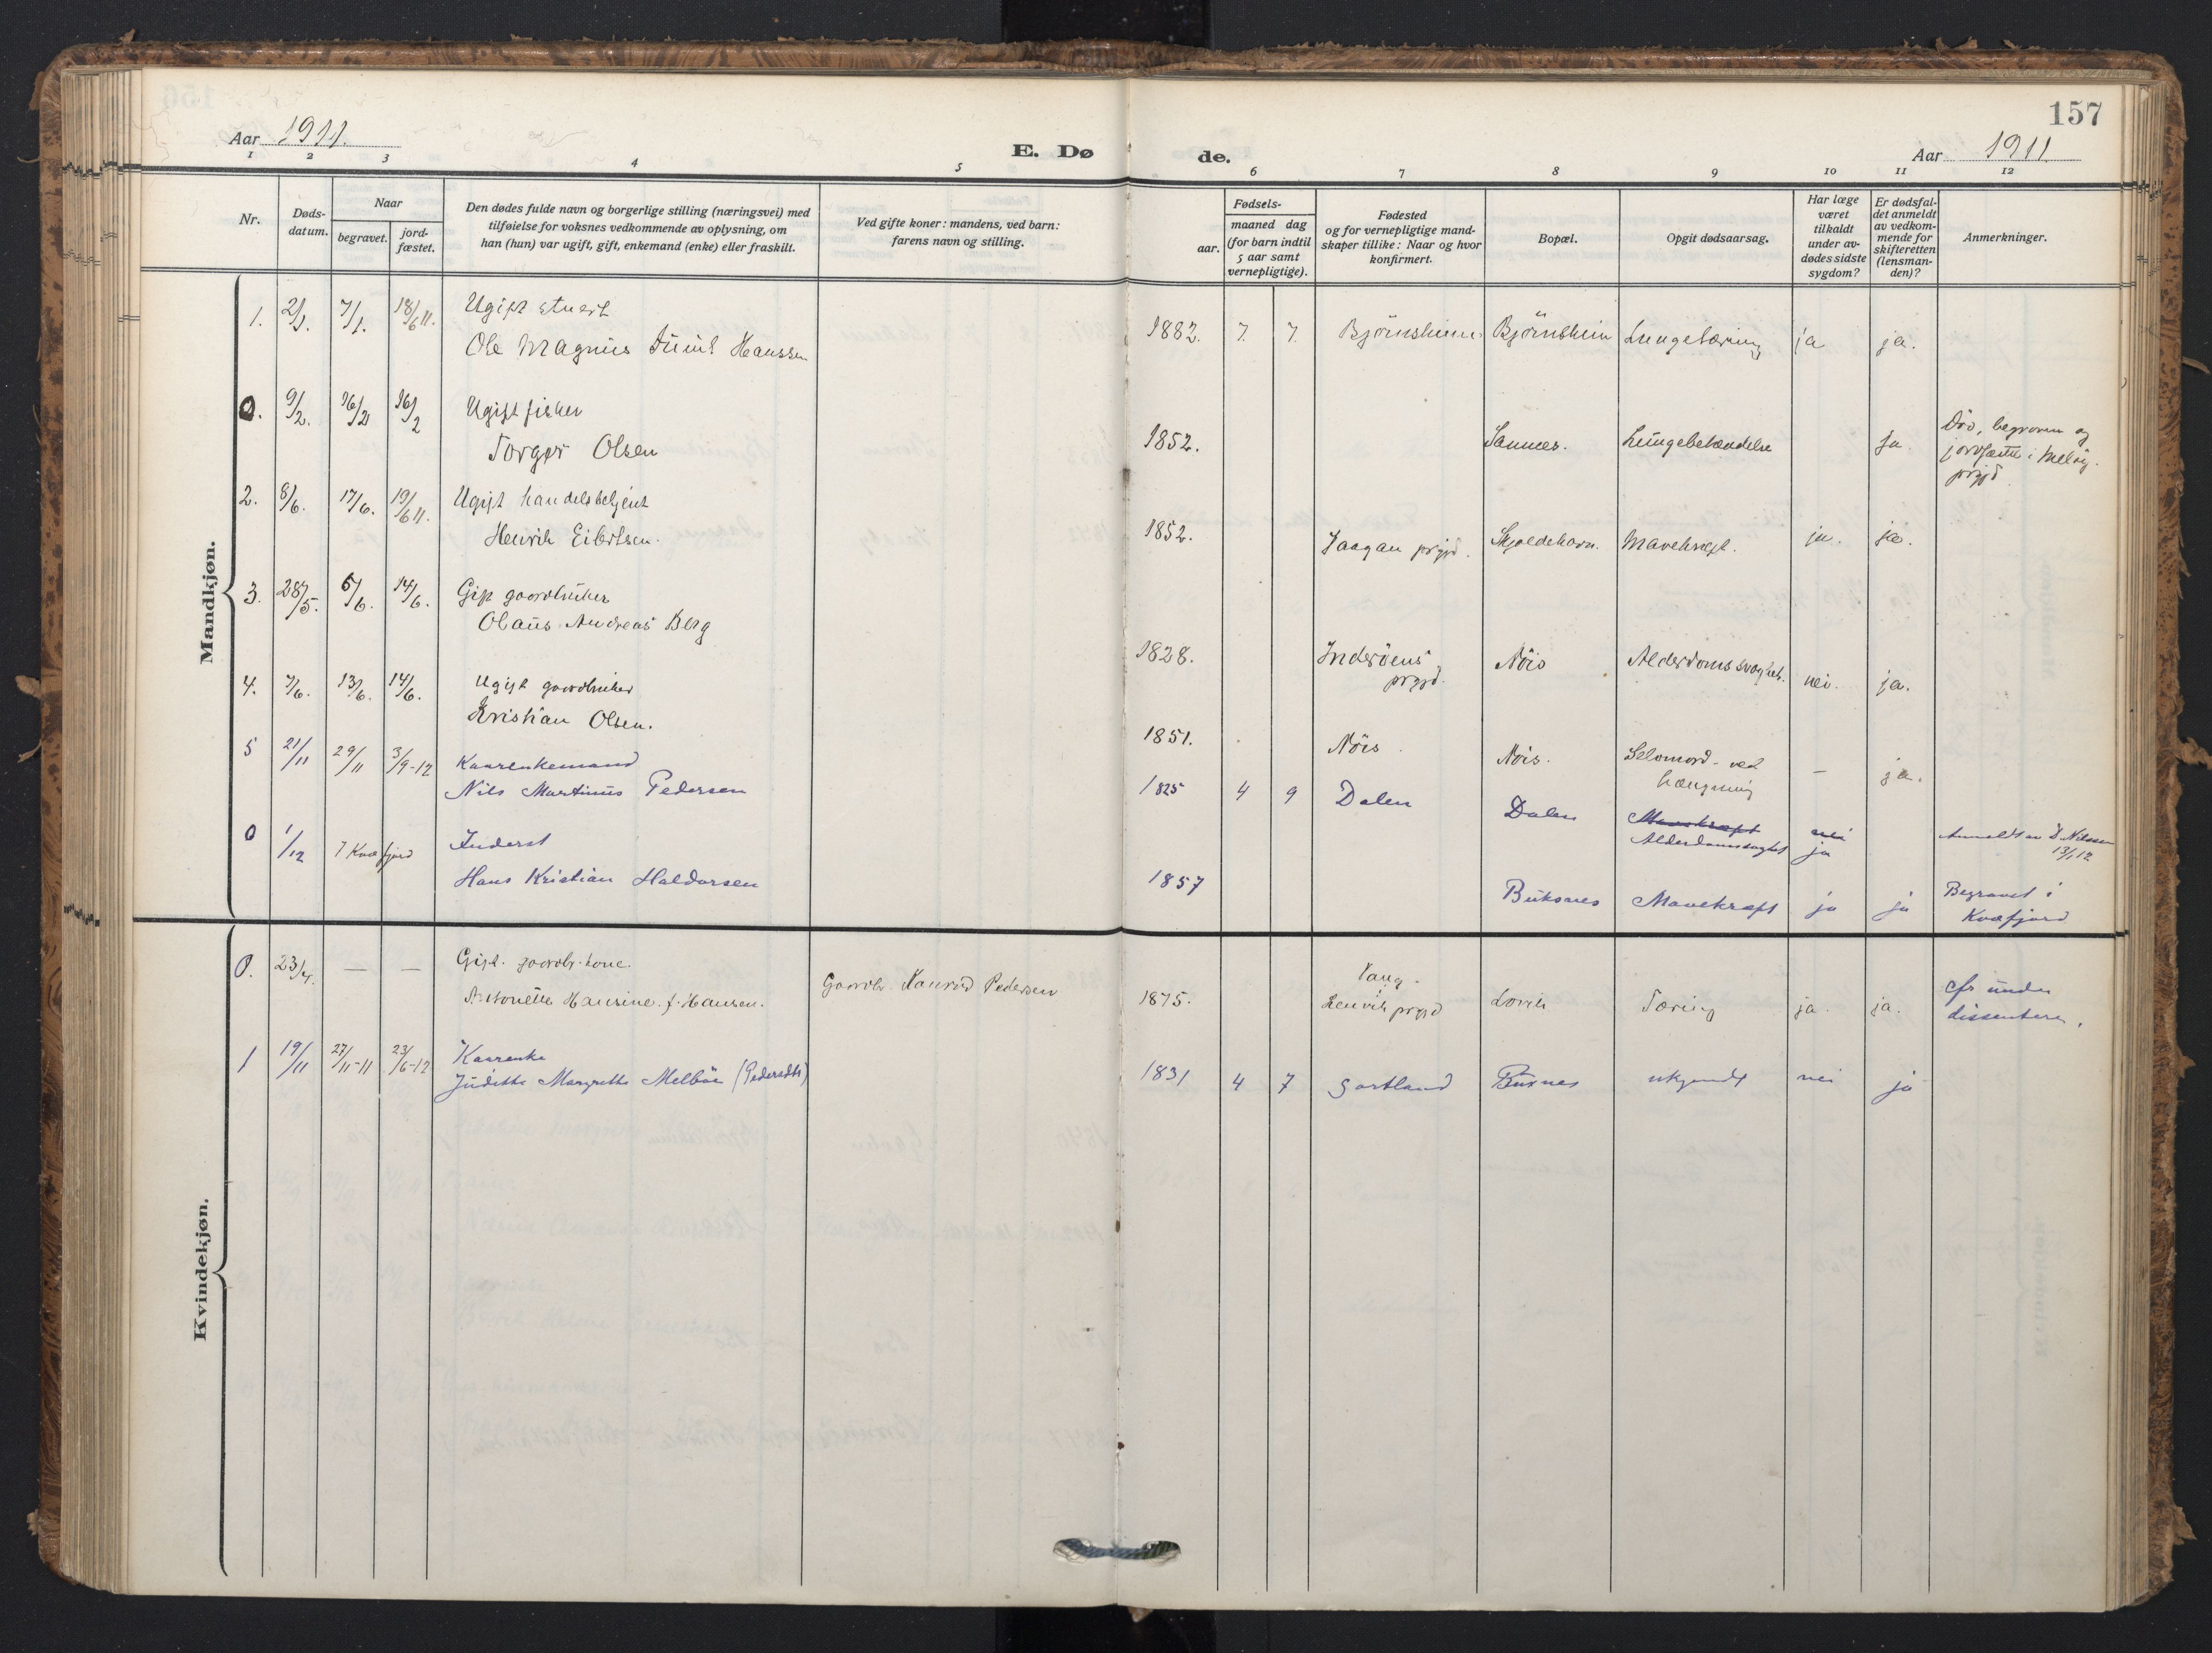 157
Aar 1911.
E. Døde.
Aar 1911
1 2 3 4 5 6 7 8 9 10 11 12
Nr.
Døds-
datum.
Naar
begravet.
jord-
fæstet.
Den dødes fulde navn og borgerlige stilling (næringsvei) med
tilføielse for voksnes vedkommende av oplysning, om
han (hun) var ugift, gift, enkemand (enke) eller fraskilt.
Ved gifte koner: mandens, ved barn:
farens navn og stilling.
Fødsels-
aar.
maaned dag
(for barn indtil
5 aar samt
vernepligtige).
Fødested
og for vernepligtige mand-
skaper tillike: Naar og hvor
konfirmert.
Bopæl.
Opgit dødsaarsag.
Har læge
været
tilkaldt
under av-
dødes sidste
sygdom?
Er dødsfal-
det anmeldt
av vedkom-
mende for
skifteretten
(lensman-
den)?
Anmerkninger.
Mandkjøn.
1. 2/1. 7/1. 18/6 11. Ugift stuert
Ole Magnus Hanssen
1882. 7 7. Björnsheim Björnsheim Lungetæring ja ja.
0. 9/2. 16/2 16/2 Ugift fisker
Torger Olsen
1852. Sannes. Lungebetændelse Ja.
Död, begraven og
jordfæstet i Melöy
prgjd
2. 8/6. 17/6. 19/6 11. Ugift handelsbetjent
Henrik Eibertsen.
1852. prgjd. Skjoldehavn. Mavekræft. ja. ja.
3. 28/5. 6/6. 14/6. Gift gaardbruker
Olaus Andreas Berg
1828. Inderöens
prgjd. Nöis Alderdomssvaghet. nei. ja.
4. 7/6. 13/6. 14/6. Ugift gaardbruker
Kristian Olsen.
1851. Nöis Nöis. Selvmord ved
hængning – ja.
5 21/11 29/11 3/9-12 Kaarenkemand
Nils Martinus Pedersen
1825 4 9 Dalen Dalen Mavekræft
Alderdomssvaghet nei
ja
Anmeldt av Nilssen
13/1 12
0 1/12 I Kvæfjord Inderst
Hans Kristian Haldorsen
1857 Buksnes Mavekræft ja ja Begravet i
Kvæfjord
Kvindekjøn.
0. 23/4. – – Gift. gaardbr. kone.
Antonette Hansine f. Hansen.
Gaardbr. Konrad Pedersen
1875. Tang.
Lenvik prgjd Lovik Tæring ja. ja. cfr under
dissentere.
1 19/11 27/11-11 23/6-12 Kaarenke
Judithe Margrethe Melböe (Pedersdtr)
1831 4 7 Sortland Buxnes ukjendt nei ja